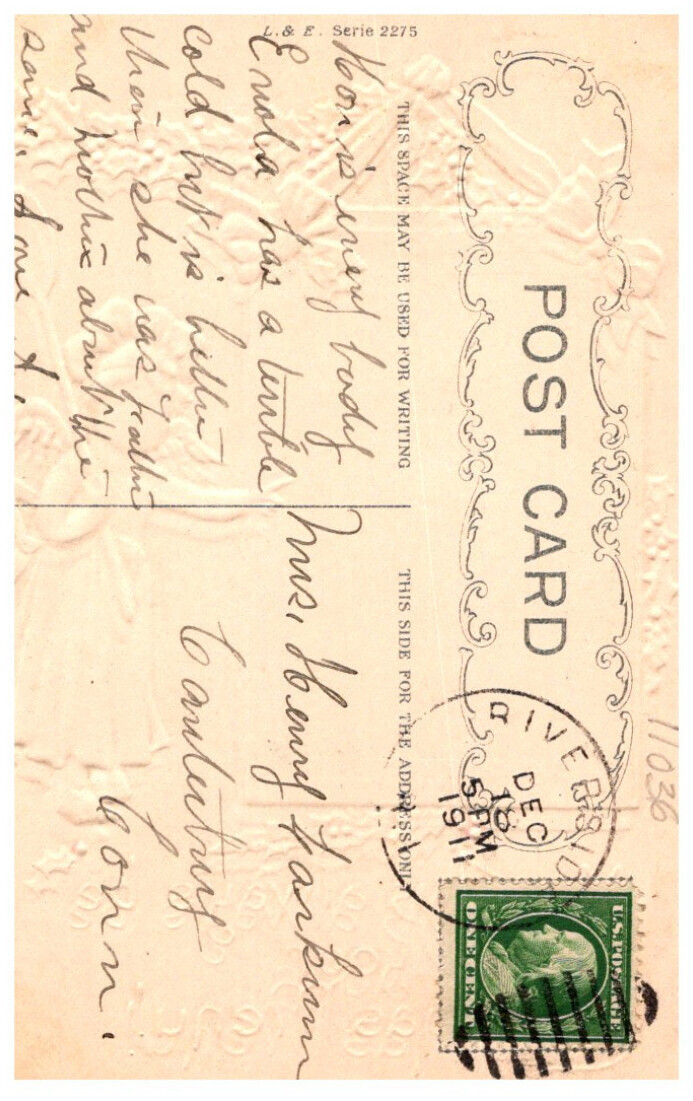 L. & E. Serie 2275
POST CARD
THIS SPACE MAY BE USED FOR WRITING
THIS SIDE FOR THE ADDRESS ONLY
How is every body
Enola has a terrible
cold but is better
then she was Father
and Mother about the
same. Love A.
Mrs. Henry
Canterbury
Conn.
RIVERSIDE
DEC
18
5 PM
1911
U.S. POSTAGE
ONE CENT
11036